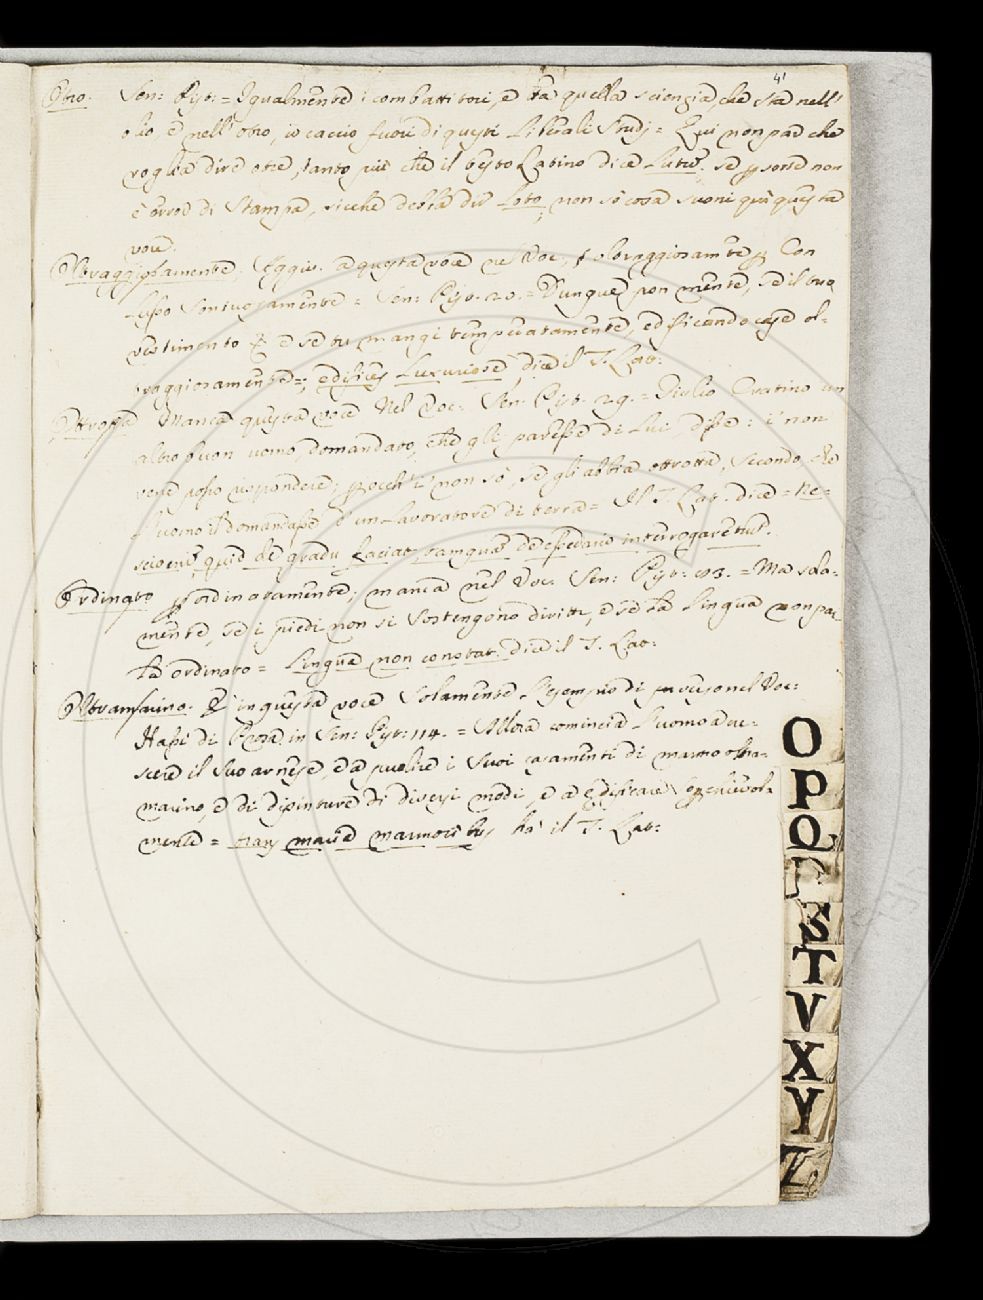 41
Otro. Sen: Pist: = Igualmente i combattitori, e tta quella scienzia, che sta nell'
olio e nell'otro, io caccio fuori di questi Liberali Studj = Qui non par che
voglia dire otre, tanto più che il testo Latino dice Luto. Se forse non
è error di Stampa, sicche debba dir Loto, non sò cosa suoni quì questa
voce.
Oltraggiosamente. Aggiu. a questa voce nel Voc: Con
Lusso Sontuosamente = Sen: Pist. 20. = Dunque pon mente, se il tuo
vestimento &c e se tu mangi temperatamente, edificando case ol-
traggiosamente =; edifices Luxuriose, dice il T. Lat:
Ottrotta Manca questa voce Nel Voc: Sen: Pist. 29. = Giulio Gratino un
altro buon uomo, domandato, che gli paresse di Lui, disse: i' non
vene posso rispondere; perocch'i' non sò, se gli abbia ottrotta, secondo che
l'uomo il domandasse d'un Lavoratore di terra = Il T. Lat. dice = Ne-
scio enim, quid de gradu faciat, tamquam de essedario interrogaretur.
Ordinato per ordinatamente; manca nel Voc. Sen: Pist: 83. = Ma sola-
mente, se i piedi non si Sostengono diritti, e se la lingua non par-
la ordinato = Lingua non constat. dice il T. Lat:
Oltramarino. È in questa voce Solamente Esempio di in verso nel Voc:
Hassi di Prosa in Sen: Pist: 114. = Allora comincia l'uomo a cre-
scere il Suo arnese, e a pulire i Suoi casamenti di marmo oltra-
marino, e di dipinture di diversi modi, e a edificare
mente = trans maria marmoribus ha il T. Lat:
O
P
Q
R
S
T
V
X
Y
Z